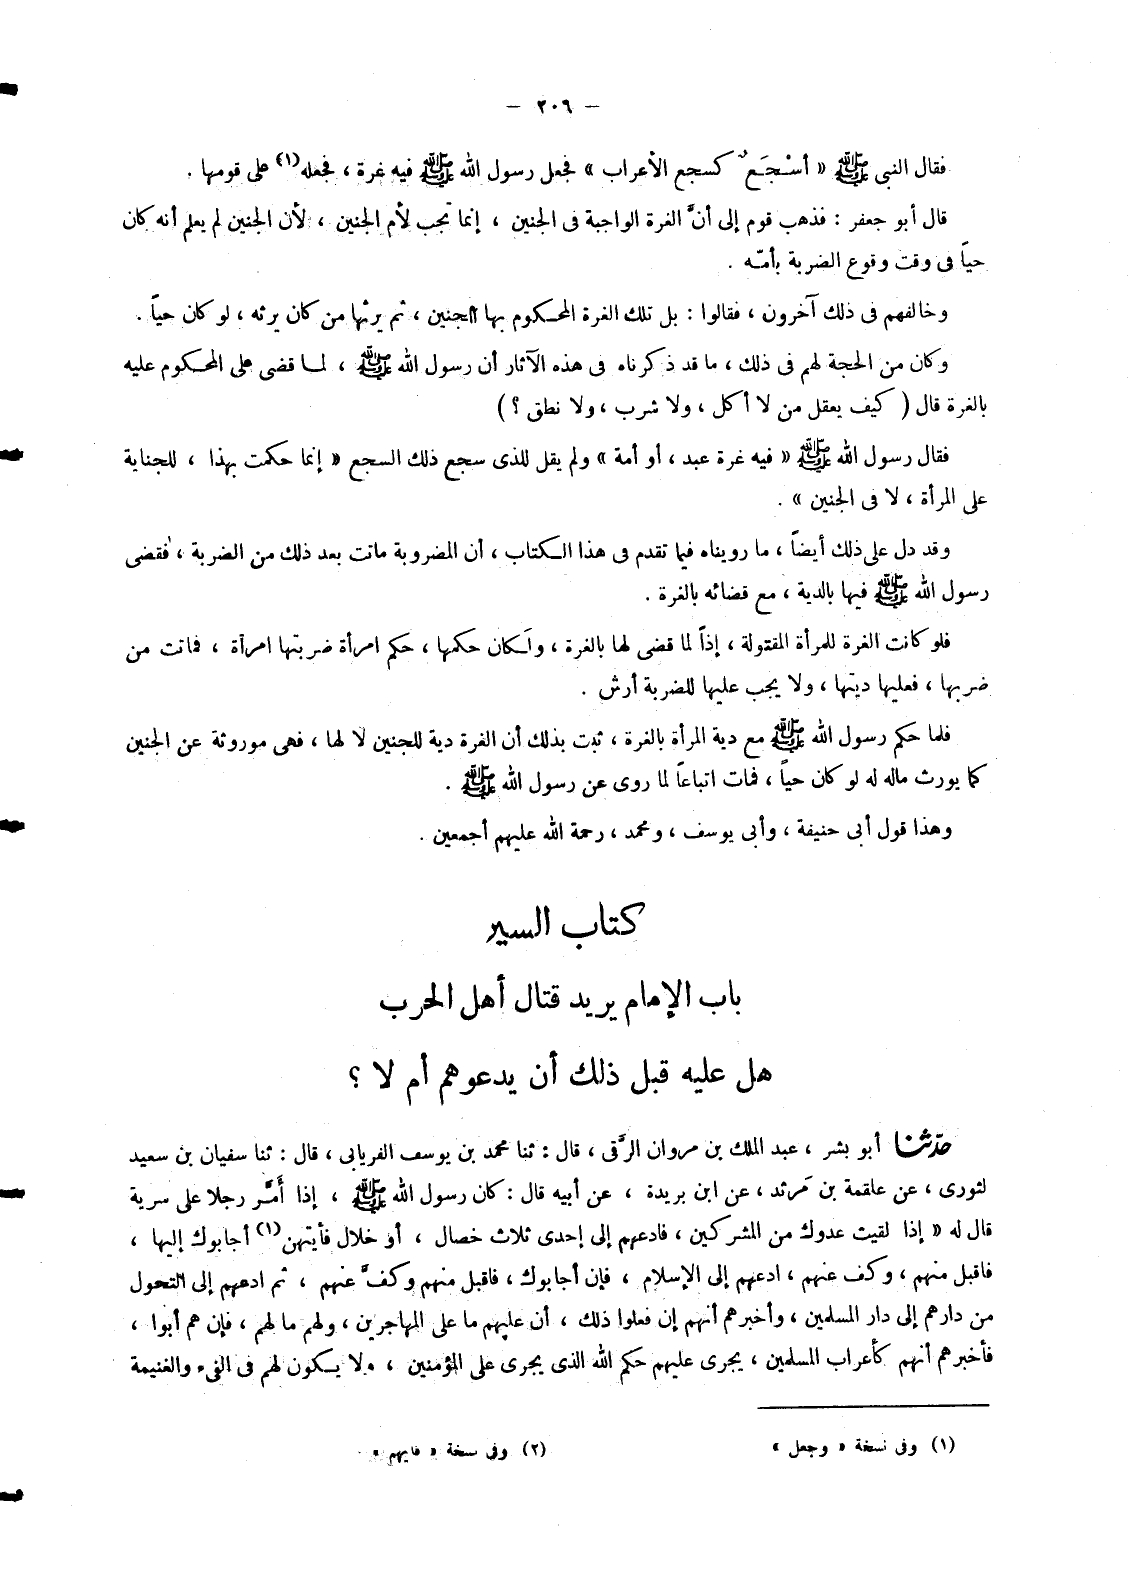 — ٢٠٦ —
فقال النبى ﷺ « أسْـجَـعٌ كسجع الأعراب » فجعل رسول الله ﷺ فيه غرة ، فجعله(١) على قومها .
قال أبو جعفر : فذهب قوم إلى أنَّ الغرة الواجبة فى الجنين ، إنما تجب لأم الجنين ، لأن الجنين لم يعلم أنه كان
حيّاً فى وقت وقوع الضربة بأمـّه .
وخالفهم فى ذلك آخرون ، فقالوا : بل تلك الغرة المحـكوم بها الجنين ، ثم يرثها من كان يرثه ، لو كان حياً .
وكان من الحجة لهم فى ذلك ، ما قد ذكرناه فى هذه الآثار أن رسول الله ﷺ ، لمـا قضى على المحـكوم عليه
بالغرة قال ( كيف يعقل من لا أكل ، ولا شرب ، ولا نطق ؟ )
فقال رسول الله ﷺ « فيه غرة عبد ، أو أمة » ولم يقل للذى سجع ذلك السجع « إنما حكمت بهذا ، للجناية
على المرأة ، لا فى الجنين » .
وقد دل على ذلك أيضاً ، ما رويناه فيما تقدم فى هذا الـكتاب ، أن المضروبة ماتت بعد ذلك من الضربة ، فقضى
رسول الله ﷺ فيها بالدية ، مع قضائه بالغرة .
فلو كانت الغرة للمرأة المقتولة ، إذاً لما قضى لها بالغرة ، ولَـكان حكمها ، حكم امرأة ضربتها امرأة ، فماتت من
ضربها ، فعليها ديتها ، ولا يجب عليها للضربة أرش .
فلما حكم رسول الله ﷺ مع دية المرأة بالغرة ، ثبت بذلك أن الغرة دية للجنين لا لها ، فهى موروثة عن الجنين
كما يورث ماله له لو كان حياً ، فمات اتباعاً لما روى عن رسول الله ﷺ .
وهذا قول أبى حنيفة ، وأبى يوسف ، ومحمد ، رحمة الله عليهم أجمعين .
كتاب السير
باب الإمام يريد قتال أهل الحرب
هل عليه قبل ذلك أن يدعوهم أم لا ؟
حدّثنا أبو بشر ، عبد الملك بن مروان الرَّقى ، قال : ثنا محمد بن يوسف الفريابى ، قال : ثنا سفيان بن سعيد
لثورى ، عن علقمة بن مَرثد ، عن ابن بريدة ، عن أبيه قال : كان رسول الله ﷺ ، إذا أَمَّر رجلا على سرية
قال له « إذا لقيت عدوك من المشركين ، فادعهم إلى إحدى ثلاث خصال ، أو خلال فأيتهن(١) أجابوك إليها ،
فاقبل منهم ، وكف عنهم ، ادعهم إلى الإسلام ، فإن أجابوك ، فاقبل منهم وكفَّ عنهم ، ثم ادعهم إلى التحول
من دارهم إلى دار المسلمين ، وأخبرهم أنهم إن فعلوا ذلك ، أن عليهم ما على المهاجرين ، ولهم ما لهم ، فإن هم أبوا ،
فأخبرهم أنهم كأعراب المسلمين ، يجرى عليهم حكم الله الذى يجرى على المؤمنين ، ولا يـكون لهم فى الفىء والغنيمة
(١) وفى نسخة « وجعل »
(٢) وفى نسخة « فايهم » .